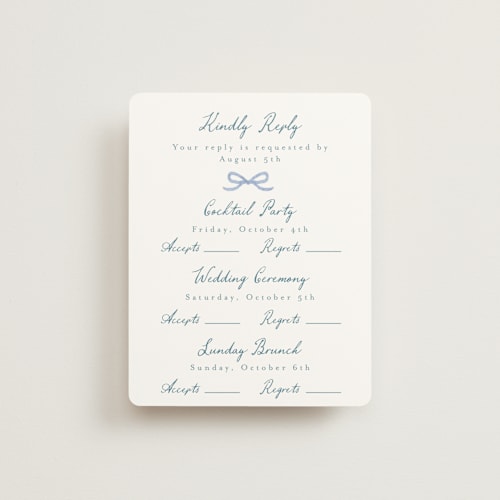 Kindly Reply
Your reply is requested by
August 5th
Cocktail Party
Friday, October 4th
Accepts Regrets
Wedding Ceremony
Saturday, October 5th
Accepts Regrets
Sunday Brunch
Sunday, October 6th
Accepts Regrets